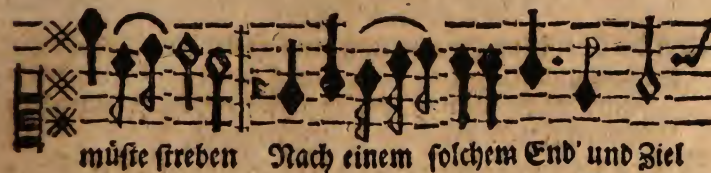 müſte ſtreben Nach einem ſolchem End' und Ziel